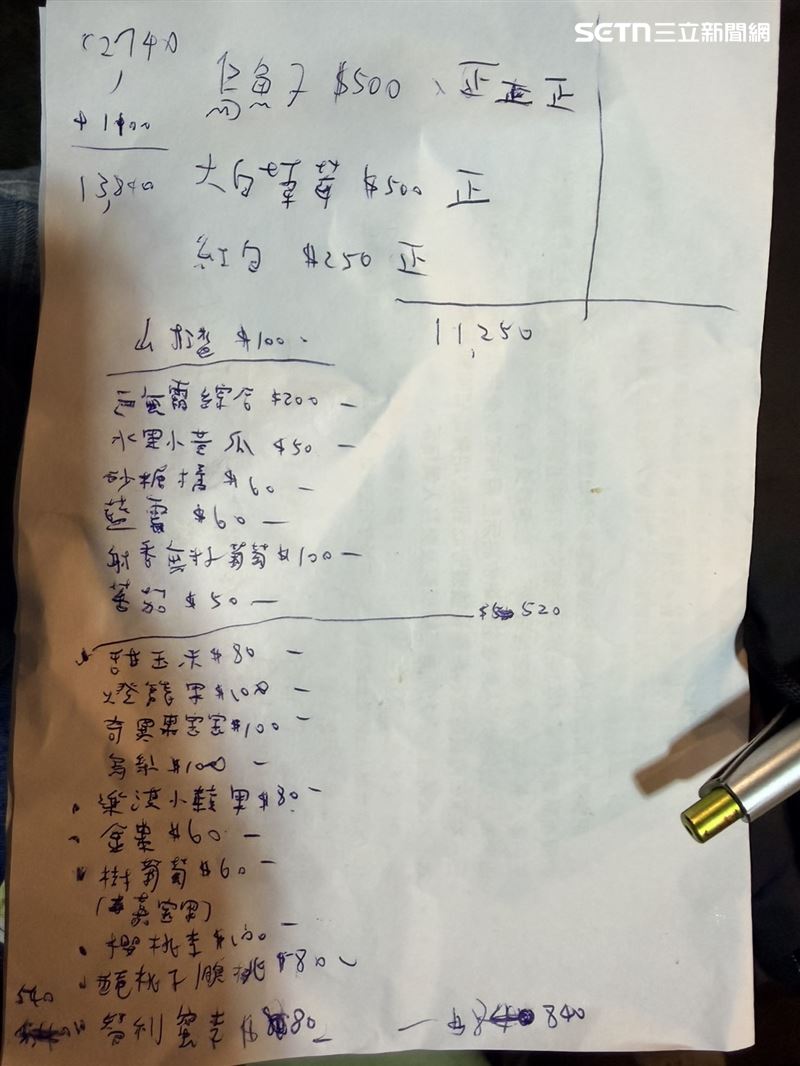 SETN三立新聞網
12740
+1100
13,840
烏魚子 $500、正正正
大白草莓 $500 正
紅白 $250 正
11,250
山楂 $100-
三無霜綜合 $200 -
水果小黃瓜 $50 -
砂糖橘 $60 -
$60 -
射香無籽葡萄 $100 -
蕃茄 $50 -
520
甜玉米 $80 -
燈籠果 $100 -
奇異果蜜蜜 $100 -
烏梨 $100 -
樂淇小蘋果 $80 -
金棗 $60 -
樹葡萄 $60 -
(嘉寶果)
櫻桃李 $100 -
$80 -
540
智利蜜李 $80 -
840